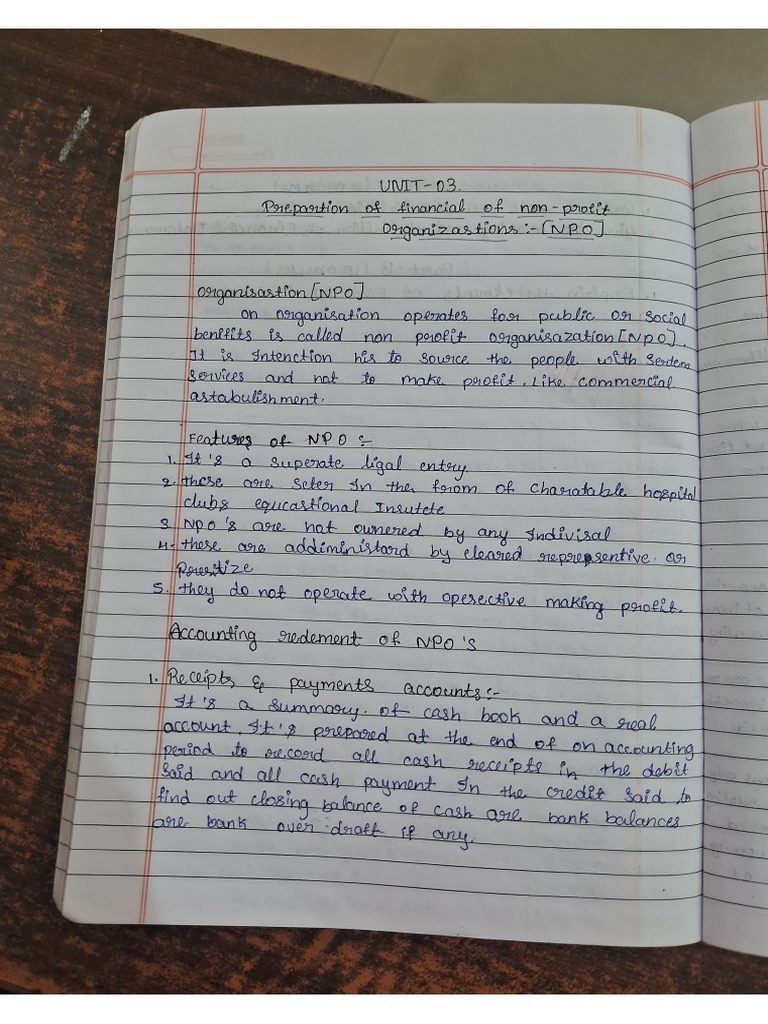 UNIT-03.
Prepartion of financial of non-profit
Organizastions:-[NPO]
Organisastion[NPO]
on organisation operates for public or social
benifits is called non profit organisazation[NPO].
It is Intenction his to source the people with
Services and not to make profit. Like commercial
astabulishment.
Features of NPO :-
1. It's a superate ligal entry
2. these are seter In the from of charatable hospital
clubs equcastional Insutete
3. NPO's are not ownered by any Indivisal
4. these are addiministard by cleared or
5. they do not operate with opesective making profit.
Accounting redement of NPO's
1. Receipts & payments accounts:-
It's a summary of cash book and a real
account. It's prepared at the end of on accounting
period to record all cash receipts in the debit
Said and all cash payment In the credit Said to
find out closing balance of cash are bank balances
are bank over draft if any.